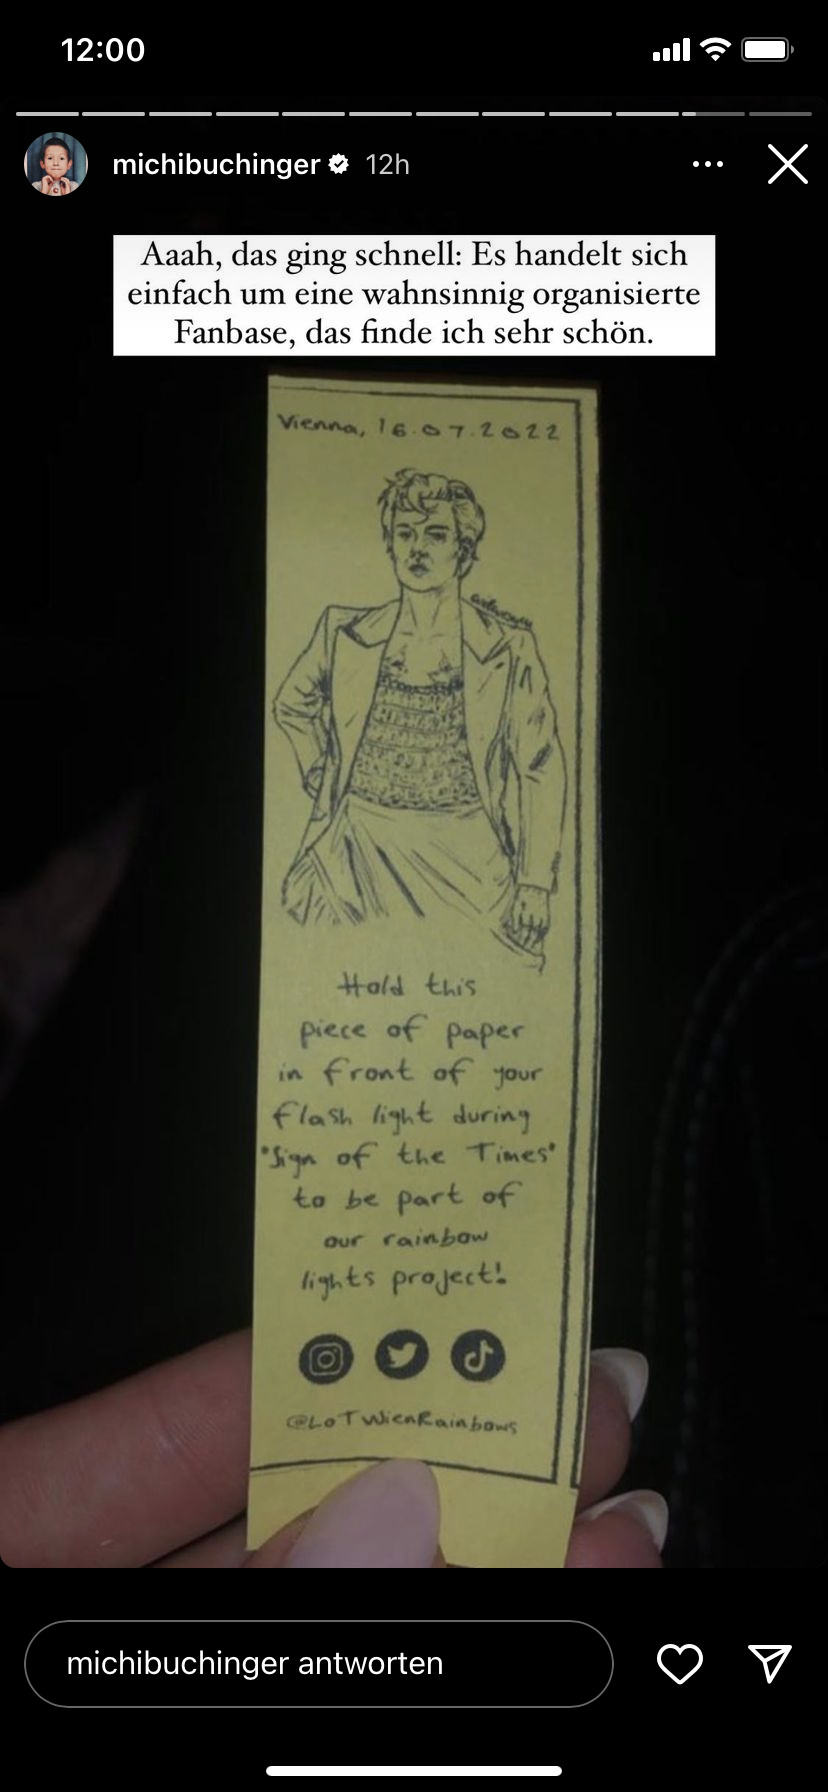 12:00
michibuchinger 12h
Aaah, das ging schnell: Es handelt sich
einfach um eine wahnsinnig organisierte
Fanbase, das finde ich sehr schön.
Vienna, 16.07.2022
Hold this
piece of paper
in front of your
flash light during
"Sign of the Times"
to be part of
our rainbow
lights project!
@LoTWienRainbows
michibuchinger antworten